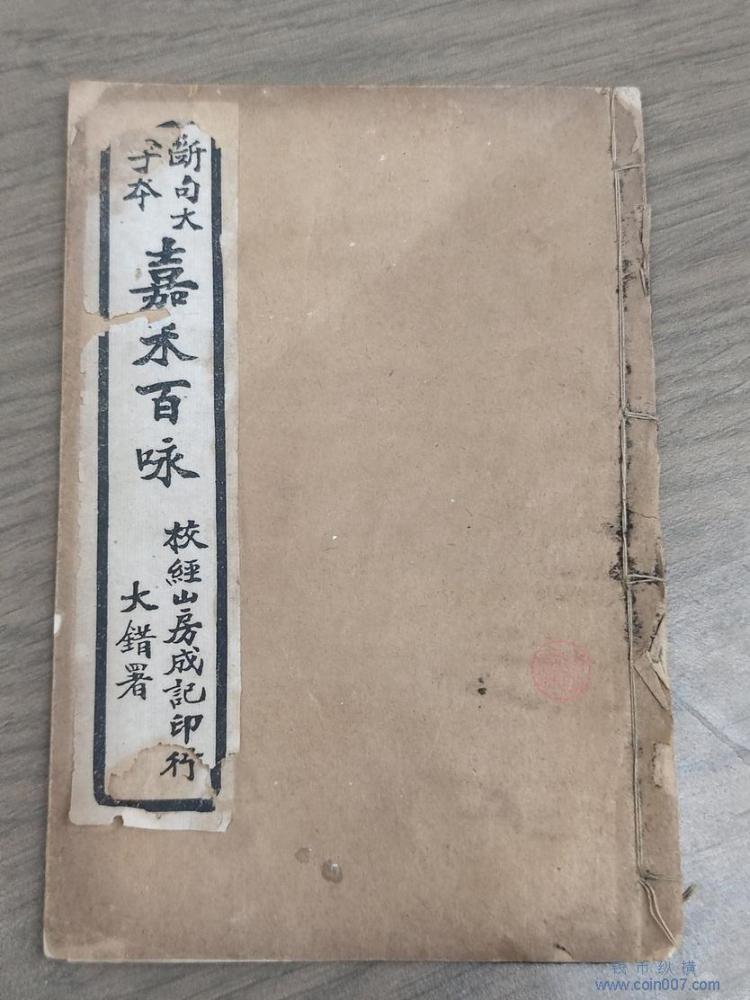 断句大
字本
嘉禾百咏
校經山房成記印行
大錯署
钱币纵横
www.coin007.com